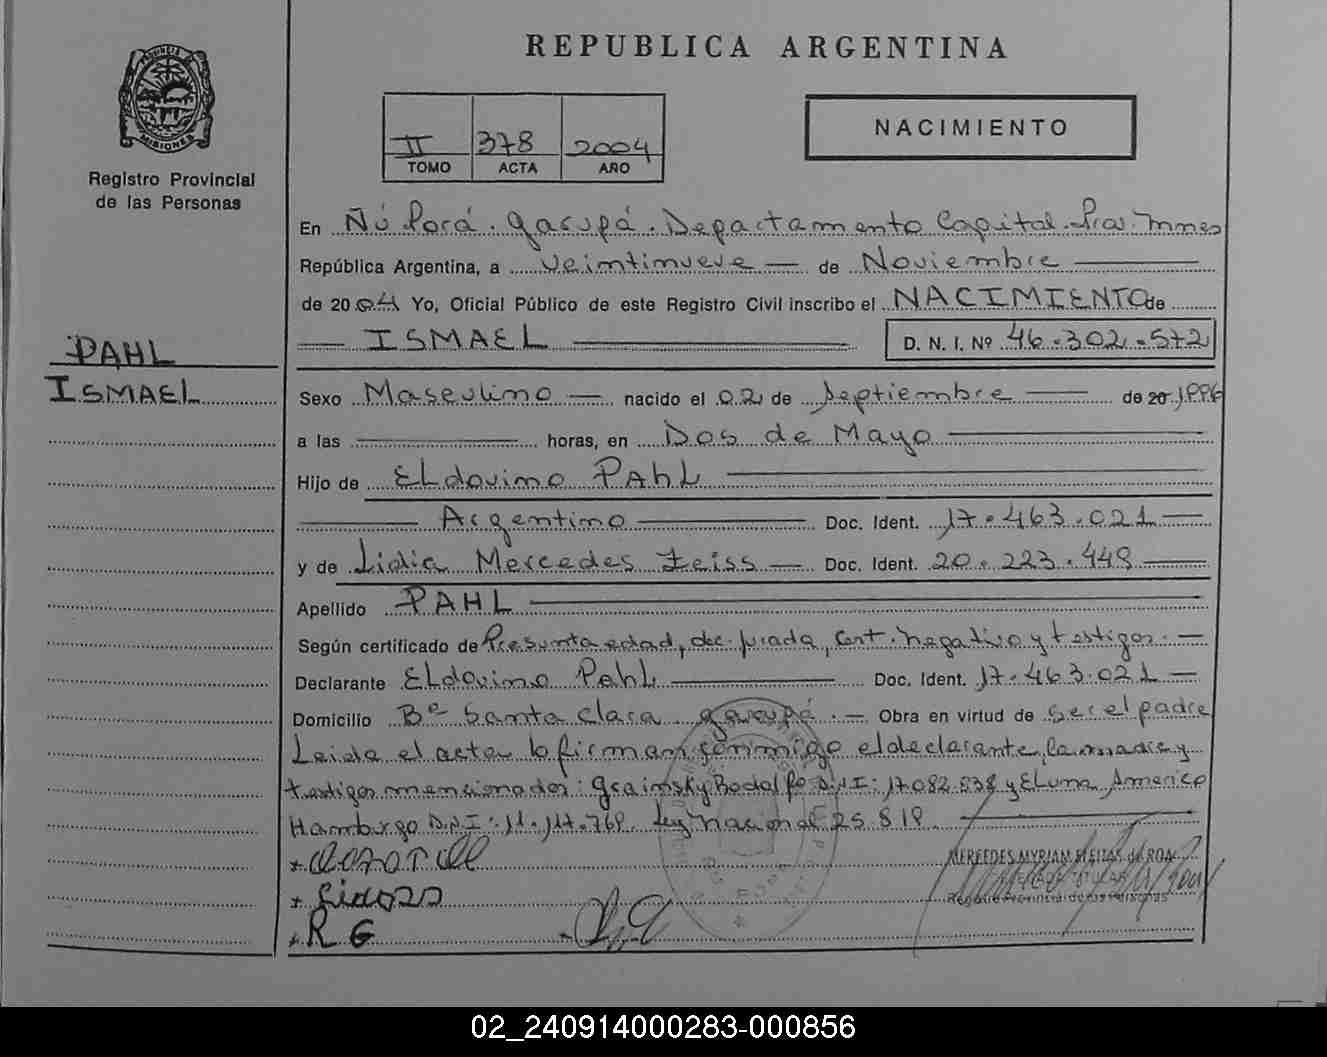 PROVINCIA DE
MISIONES
Registro Provincial
de las Personas
PAHL
ISMAEL
REPUBLICA ARGENTINA
II 378 2004
TOMO ACTA AÑO
NACIMIENTO
En Ñú Porá. Garupá. Departamento Capital. Pcia. Mnes
República Argentina, a veintinueve — de Noviembre
de 2004 Yo, Oficial Público de este Registro Civil inscribo el NACIMIENTO de
— ISMAEL — D. N. I. Nº 46.302.572
Sexo Masculino — nacido el 02 de Septiembre — de 20 1996
a las — horas, en Dos de Mayo —
Hijo de ELdovino PAhL —
— Argentino — Doc. Ident. 17.463.021 —
y de Lidia Mercedes Zeiss — Doc. Ident. 20.223.449 —
Apellido PAHL —
Según certificado de Presunta edad, dec. jurada, Cert. negativo y testigos. —
Declarante ELdovino PahL — Doc. Ident. 17.463.021 —
Domicilio Bº Santa Clara Garupá. — Obra en virtud de ser el padre
Leida el acta, la firman conmigo el declarante, la madre y
testigos mencionados: Rodolfo D.N.I: 17.082.538 y Luna, Americo
Hamburgo D.N.I: 11.117.769. Ley Nacional 25.819. —
R G
MERCEDES MYRIAM FLEITAS de ROA
Registro Provincial de las Personas
02_240914000283-000856